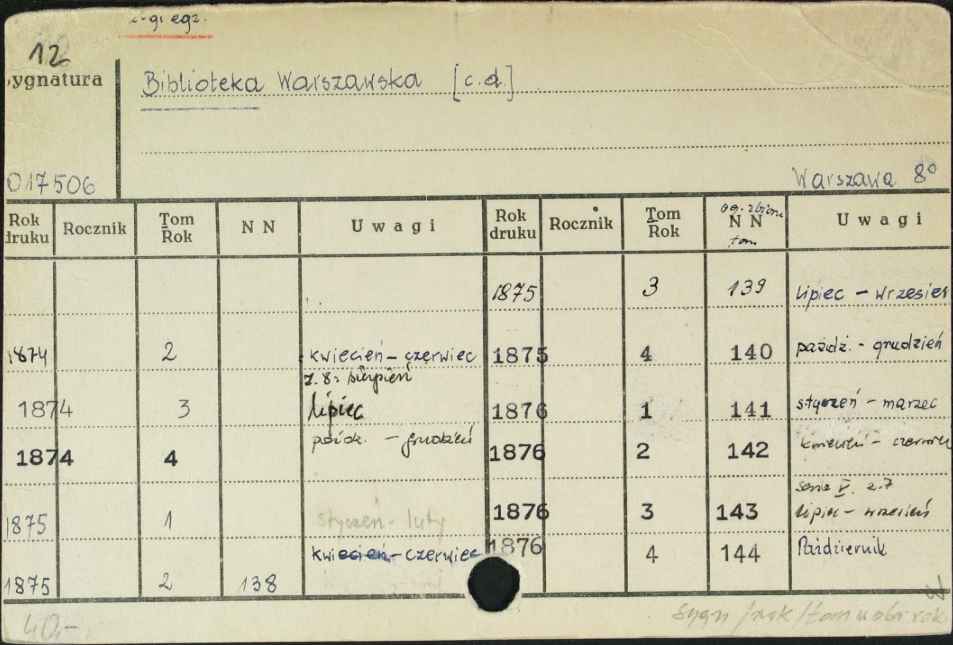 2-gi egz.
12
Sygnatura
Biblioteka Warszawska [c.d.]
017506
Warszawa 8°
Rok druku Rocznik Tom Rok N N Uwagi Rok druku Rocznik Tom Rok N N tom. Uwagi
1875 3 139 lipiec - wrzesień
1874 2 kwiecień - czerwiec 1875 4 140 paźdź. - grudzień
z. 8: sierpień
1874 3 lipiec 1876 1 141 styczeń - marzec
1874 4 paźdz. - grudzień 1876 2 142 kwiecień - czerwiec
1875 1 styczeń - luty 1876 3 143 seria V. z.7 lipiec - wrzesień
1875 2 138 kwiecień - czerwiec 1876 4 144 Październik
40,-
sygn/rok/tom